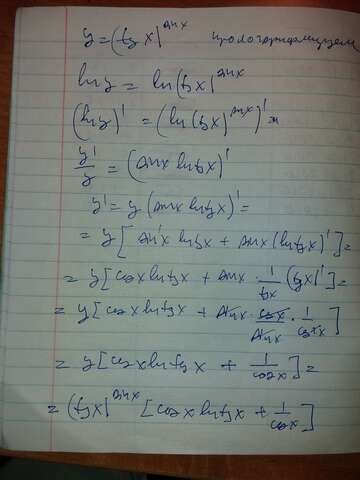 y = (tgx)^sinx прологарифмируем
lny = ln(tgx)^sinx
(lny)' = (ln(tgx)^sinx)'
y'/y = (sinx lntgx)'
y' = y (sinx lntgx)' =
= y [sin'x lntgx + sinx (lntgx)'] =
= y [cosx lntgx + sinx · 1/tgx (tgx)'] =
= y [cosx lntgx + sinx · cosx/sinx · 1/cos²x]
= y [cosx lntgx + 1/cosx] =
= (tgx)^sinx [cosx lntgx + 1/cosx]